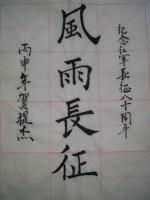 纪念红军長征八十周年
風雨長征
丙申年賀挺杰